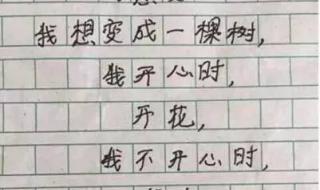 我想变成一棵树，
我开心时，
开花，
我不开心时，